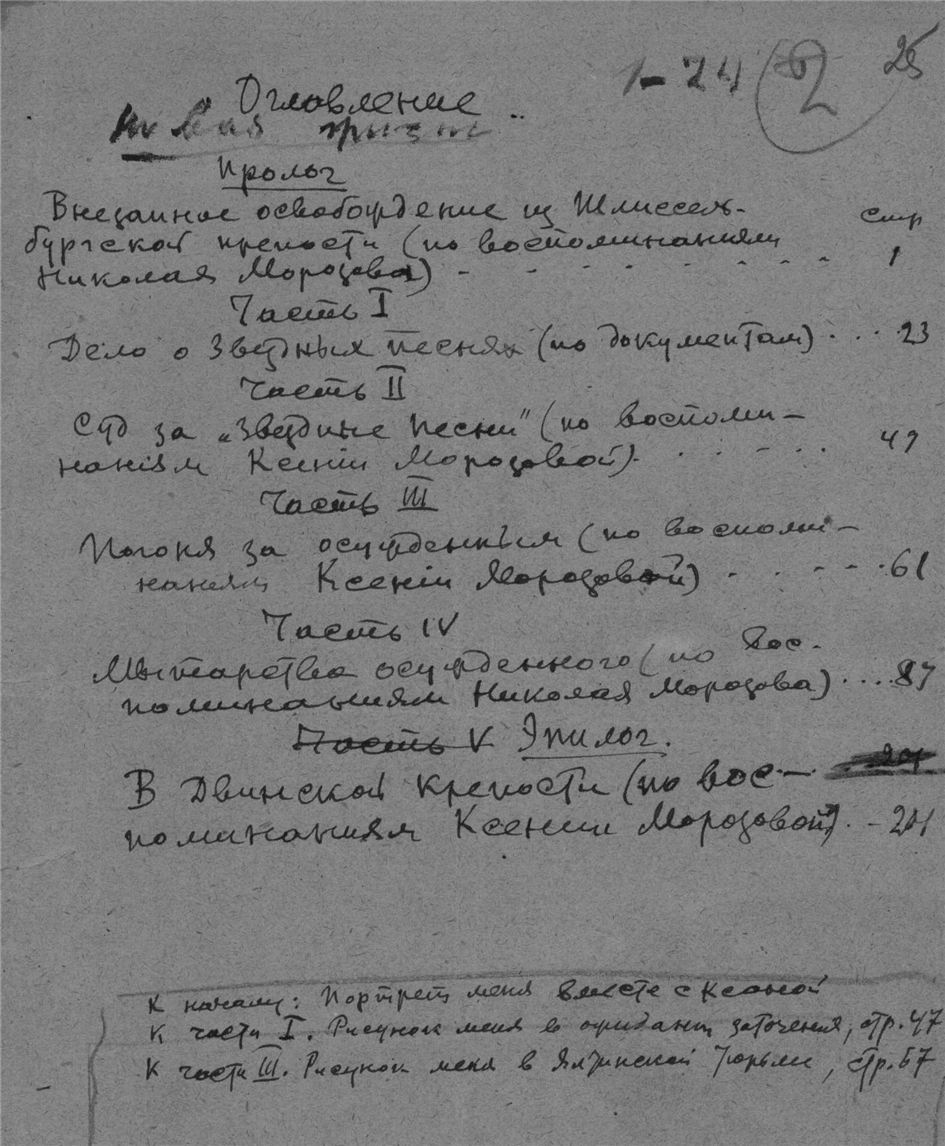 1-24 2 25
Оглавление
Пролог
Внезапное освобождение из Шлиссель-
бургской крепости (по воспоминаниям стр
Николая Морозова) - - - - - - - - 1
Часть I
Дело о Звездных песнях (по документам) . . . 23
Часть II
Суд за „Звездные песни" (по воспоми-
наніям Ксеніи Морозовой) . . - - . . 49
Часть III
Погоня за осужденным (по воспоми-
наниям Ксеніи Морозовой) - . . - - - 61
Часть IV
Мытарства осужденного (по вос-
поминаниям Николая Морозова) . . . . 87
Часть V Эпилог.
В Двинской крепости (по вос-
поминаниям Ксении Морозовой) . - 201
К началу: Портрет меня вместе с Ксаной
К части I. Рисунок меня в ожидании заточения, стр. 47
К части III. Рисунок меня в Ялтинской тюрьме, стр. 67